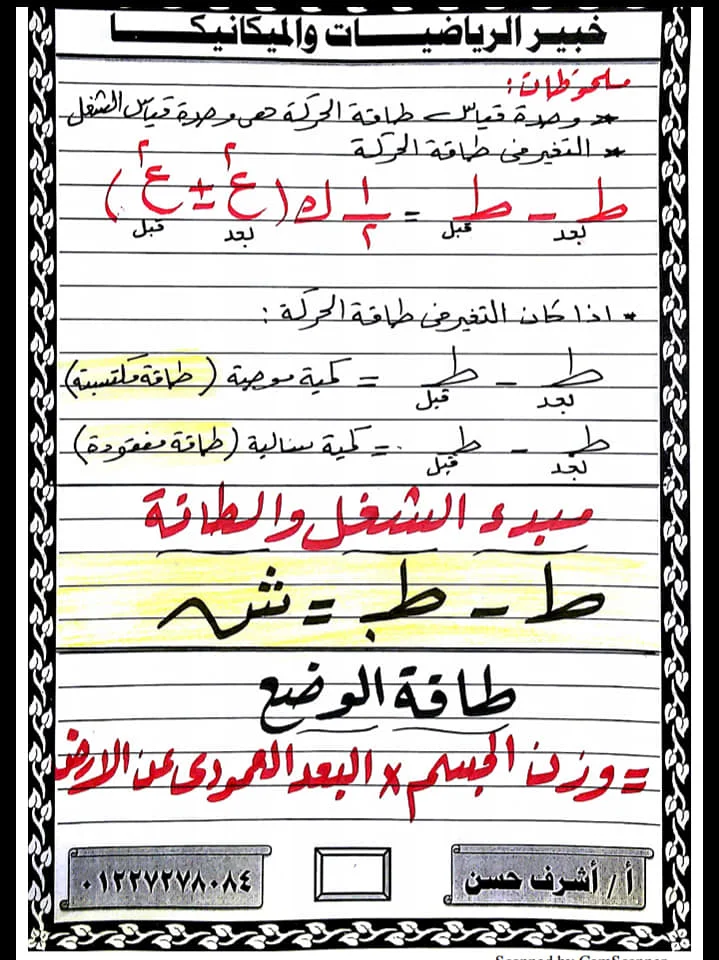 خبير الرياضيات والميكانيكا
ملحوظات:
* وحدة قياس طاقة الحركة هى وحدة قياس الشغل
* التغير فى طاقة الحركة
ط بعد - ط قبل = ١/٢ ك (ع٢ بعد ± ع٢ قبل)
* اذا كان التغير فى طاقة الحركة :
ط بعد - ط قبل = كمية موجبة (طاقة مكتسبة)
ط بعد - ط قبل = كمية سالبة (طاقة مفقودة)
مبدء الشغل والطاقة
ط - ط. = ش
طاقة الوضع
= وزن الجسم × البعد العمودى عن الارض
أ / أشرف حسن
٠١٢٢٧٢٧٨٠٨٤